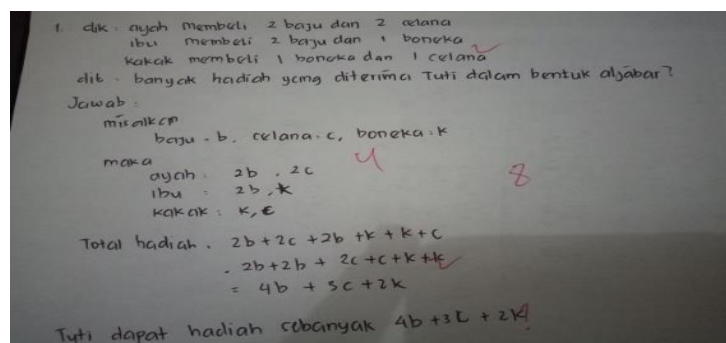 1. dik : ayah membeli 2 baju dan 2 celana
ibu membeli 2 baju dan 1 boneka
kakak membeli 1 boneka dan 1 celana
dit : banyak hadiah yang diterima Tuti dalam bentuk aljabar?
Jawab :
misalkan
baju = b, celana = c, boneka = k
maka
ayah : 2b, 2c
4
ibu : 2b, k
8
kakak : k, c
Total hadiah = 2b + 2c + 2b + k + k + c
= 2b + 2b + 2c + c + k + k
= 4b + 3c + 2k
Tuti dapat hadiah sebanyak 4b + 3c + 2k